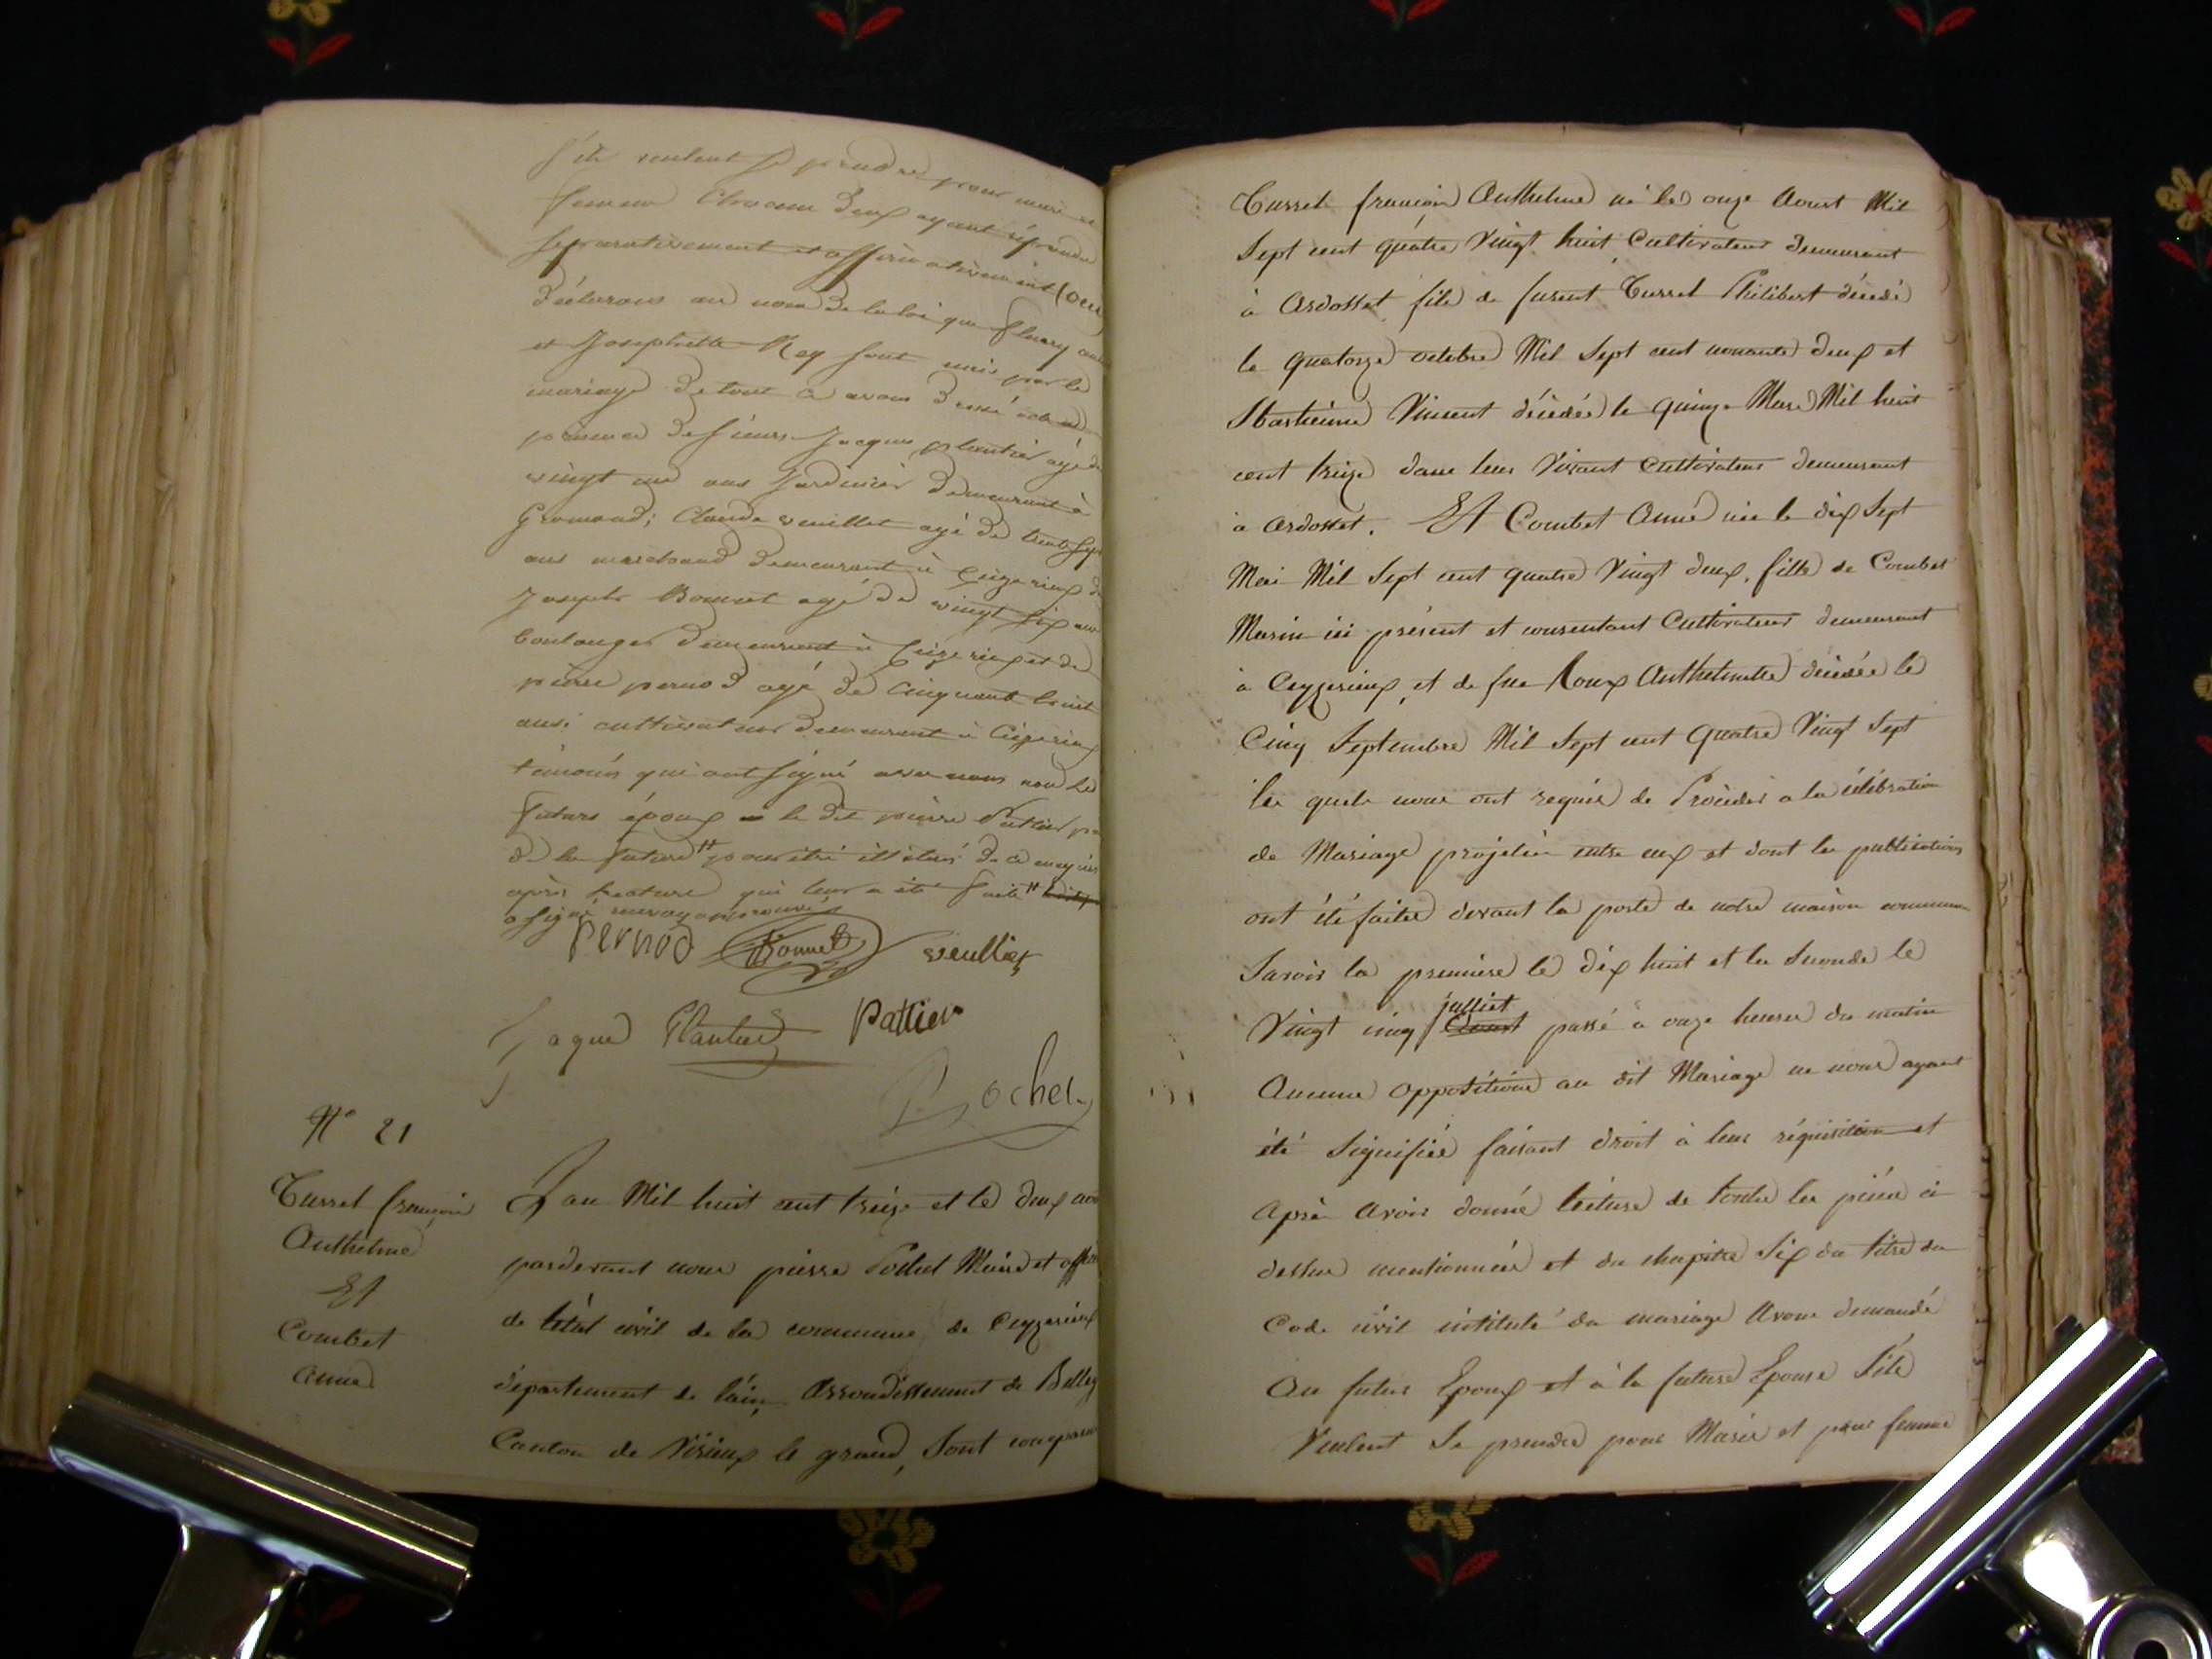 s'ils veulent se prendre pour mari et
femme Chacun deux ayant répondu
séparativement et affirmativement (oui)
déclarons au nom de la loi que fleury
et Josephette Rey sont unis par le
mariage de tout ce avons dressé acte en
présence de sieurs Jacques plantier agé de
vingt un ans Jardinier demeurant à
Gromond; Claude veuillet agé de trente sept
ans marchand demeurant à Ceizerieux de
Joseph Bonnet agé de vingt six ans
boulanger demeurant à Ceizerieux et de
pierre pernod agé de Cinquante huit
ans cultivateur demeurant à Ceizerieux
témoins qui ont signé avec nous non les
futurs époux le dit pierre Pattier
de la future pour être illiterés de ce enquis
après lecture qui leur a été faite
a signé renvoy approuvé
Pernod Bonnet veullier
Jaque Plantier Pattier
Pochet
N° 21
Turrel françois
Anthelme
Et
Combet
anne
L'an Mil huit cent treize et le deux aou
pardevant nous pierre Pochet Maire et offici
de létat civil de la commune de Ceyzerieux
département de lain, arrondissement de Belley
Canton de Virieux le grand, Sont compar
Turrel françois Anthelme né le onze Aoust Mil
Sept cent quatre Vingt huit Cultivateur demeurant
à Ardosset fils de furent Turrel Philibert décédé
le quatorze octobre Mil Sept cent nonante deux et
Vincent décédée le quinze Mars Mil huit
cent treize dans leur Vivant Cultivateur demeurant
à Ardosset. Et Combet Anne née le dix Sept
Mai Mil Sept cent quatre Vingt deux, fille de Combet
Marin ici présent et consentant Cultivateur demeurant
à Ceyzerieux, et de fue Roux Anthelmette décédée le
Cinq Septembre Mil Sept cent Quatre Vingt Sept
les quels nous ont requis de Procéder a la célébration
de Mariage projetée entre eux et dont les publications
ont été faites devant la porte de notre maison commune
Savoir la première le dix huit et la Seconde le
Vingt cinq Aoust julliet passé à onze heures du matin
Aucune opposition au dit Mariage ne nous ayant
été Signifiée faisant droit à leur réquisition et
Après Avoir donné lecture de toutes les pièces ci
dessus mentionnées et du chapitre Six du titre du
Code civil intitulé du mariage Avons demandé
Au futur Epoux et à la future Epouse S'ils
Veulent Se prendre pour Mari et pour femme